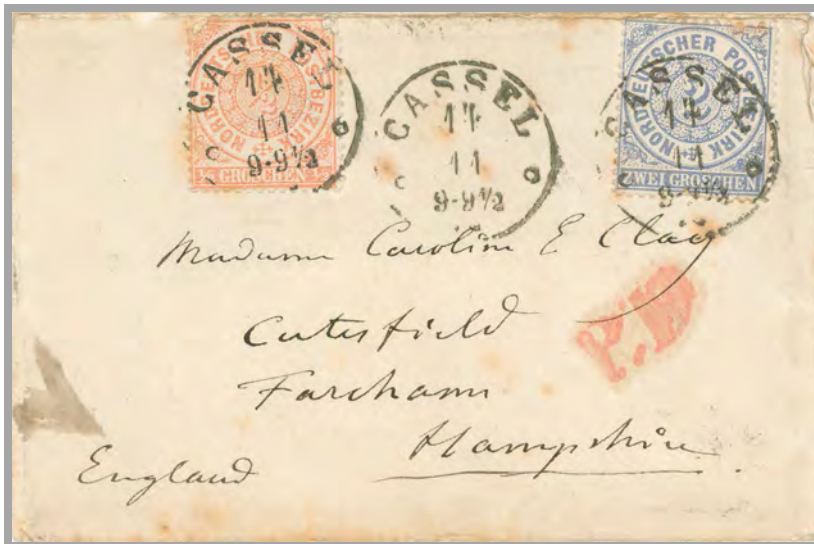 CASSEL
17
11
9-9½
NORDDEUTSCHER POSTBEZIRK
½ GROSCHEN ½
CASSEL
17
11
9-9½
NORDDEUTSCHER POSTBEZIRK
2
ZWEI GROSCHEN
CASSEL
17
11
9-9½
Madame Caroline E Clay
Fareham
Hampshire
England
P.D